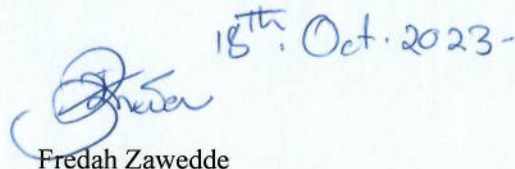 18th. Oct. 2023-
Fredah Zawedde